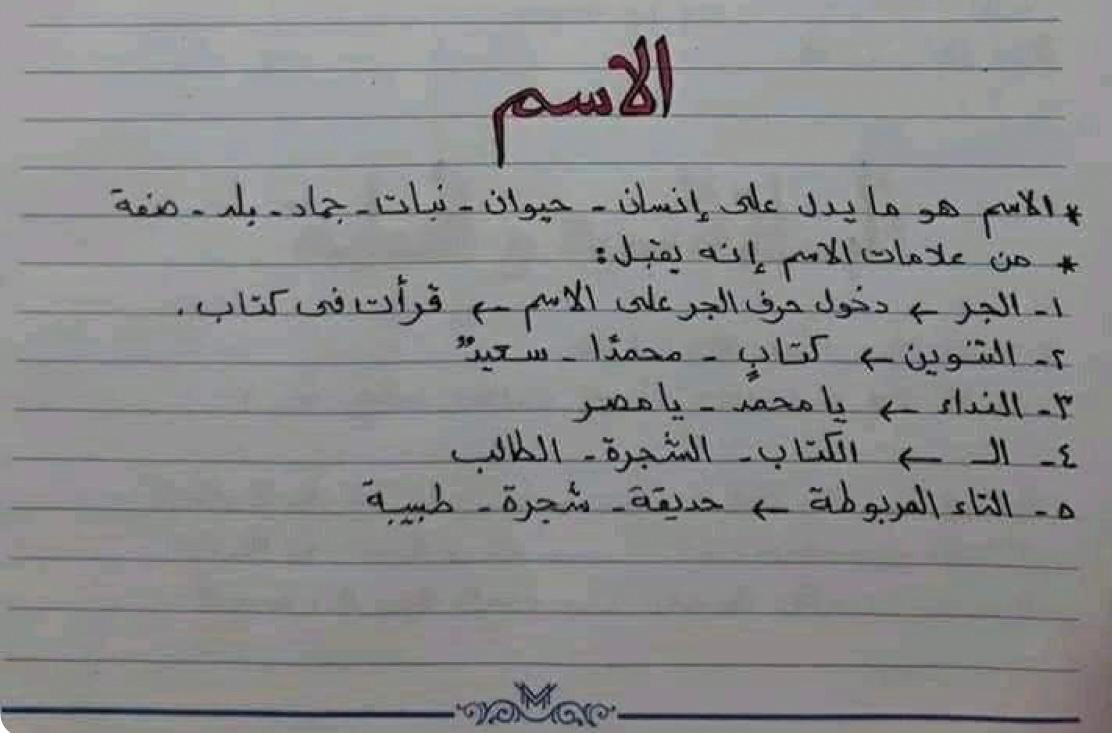 الاسم
* الاسم هو ما يدل على إنسان - حيوان - نبات - جماد - بلد - صفة
* من علامات الاسم إنه يقبل :
١- الجر ← دخول حرف الجر على الاسم ← قرأت فى كتاب .
٢- التنوين ← كتابٍ - محمدًا - سعيدٌ
٣- النداء ← يا محمد - يا مصر
٤- الـ ← الكتاب - الشجرة - الطالب
٥- التاء المربوطة ← حديقة - شجرة - طبيبة